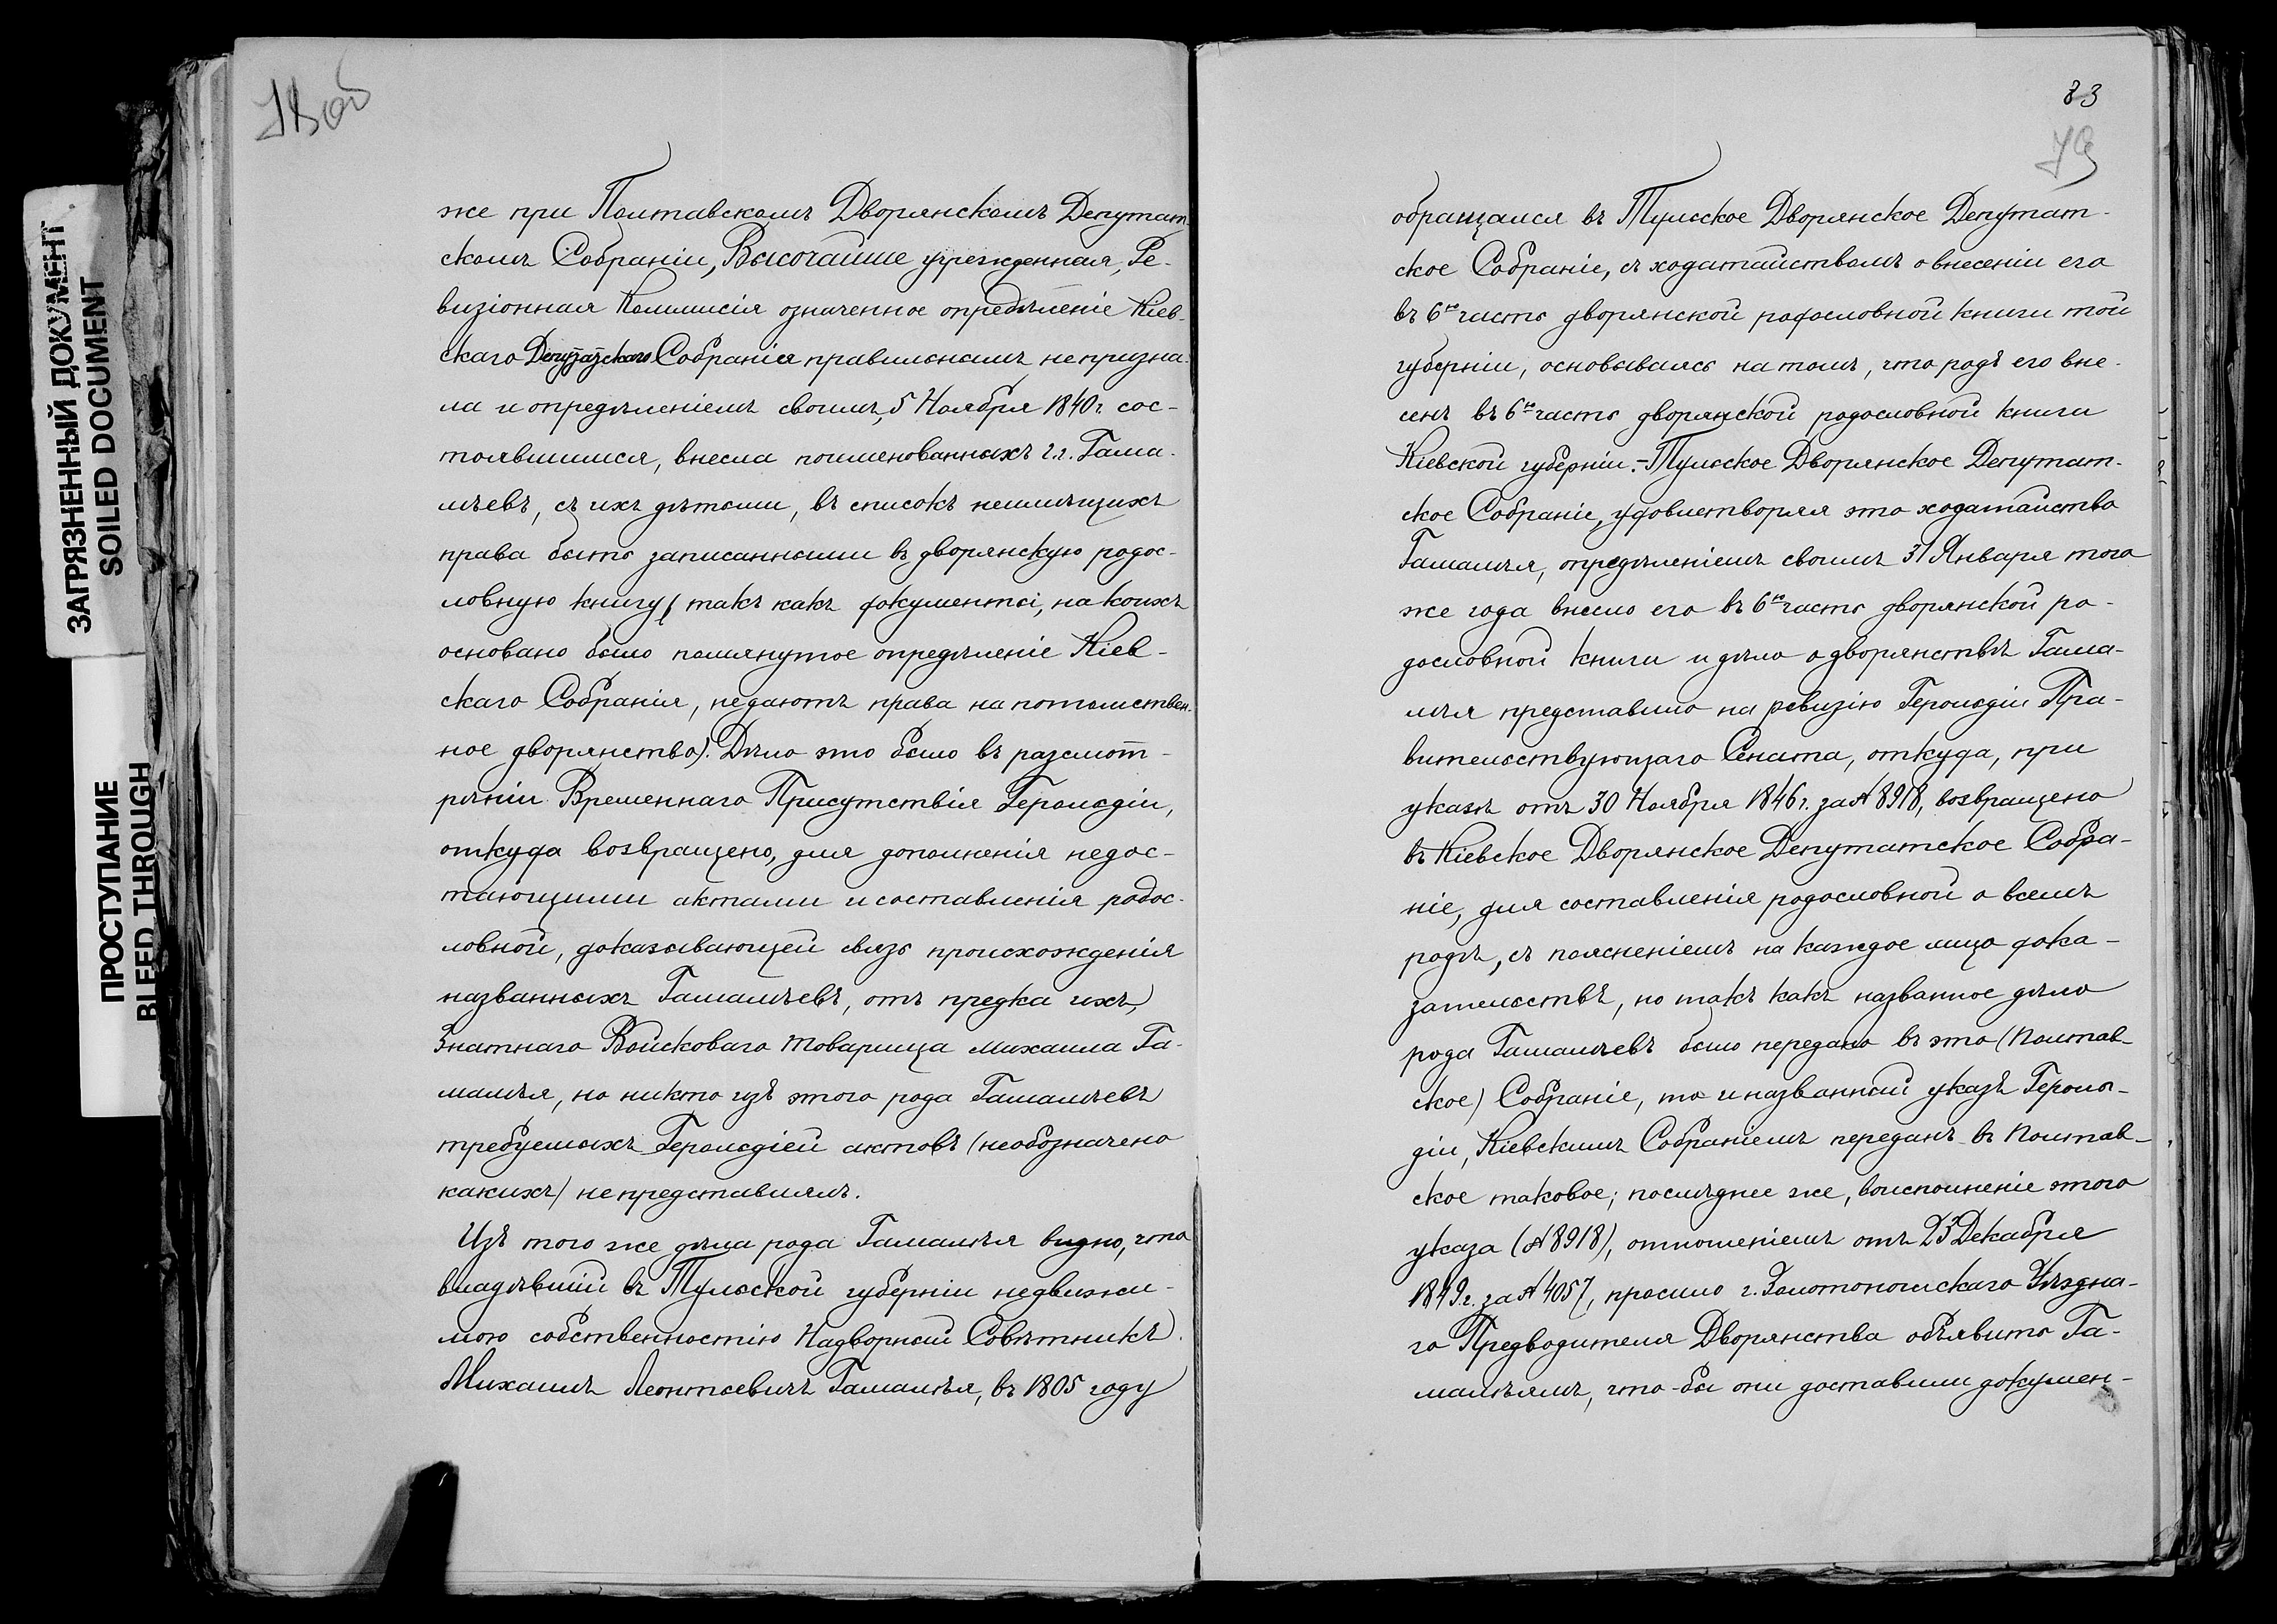 ЗАГРЯЗНЕННЫЙ ДОКУМЕНТ
SOILED DOCUMENT
ПРОСТУПАНИЕ
BLEED THROUGH
же при Полтавскомъ Дворянскомъ Депутат
скомъ Собраніи, Высочайше учрежденная, Ре-
визіонная Коммисія означенное опредѣленіе Кіев-
скаго Депутатскаго Собранія правильнымъ не призна-
ла и опредѣленіемъ своимъ, 5 Ноября 1840 г. сос-
тоявшимся, внесла поименованныхъ г.г. Гама-
лѣевъ, съ ихъ дѣтьми, въ списокъ неимѣщихъ
права быть записанными въ дворянскую родос-
ловную книгу (такъ какъ документы, на коихъ
основано было помянутое опредѣленіе Кіев-
скаго Собранія, недаютъ права на потомствен.
ное дворянство). Дѣло это было въ разсмот-
рѣніи Временнаго Присутствія Герольдіи,
откуда возвращено, для дополненія недос-
тающими актами и составленія родос-
ловной, доказывающей связь происхожденія
названныхъ Гамалѣевъ, отъ предка ихъ,
Знатнаго Войсковаго товарища Михаила Га-
малѣя, но никто изъ этого рода Гамалѣевъ
требуемыхъ Герольдіей актовъ (необозначено
какихъ) не представлялъ.
Изъ того же дѣла рода Гамалѣя видно, что
владѣвшій въ Тульской губерніи недвижи-
мою собственностію Надворный Совѣтникъ
Михаилъ Леонтьевичъ Гамалѣя, въ 1805 году
83
79
обращался въ Тульское Дворянское Депутат-
ское Собраніе, съ ходатайствомъ о внесеніи его
въ 6ю часть дворянской родословной книги той
губерніи, основываясь на томъ, что родъ его вне-
сенъ въ 6ю часть дворянской родословной книги
Кіевской губерніи.-Тульское Дворянское Депутат-
ское Собраніе, удовлетворяя это ходатайство
Гамалѣя, опредѣленіемъ своимъ 31 Января того
же года внесло его въ 6ю часть дворянской ро-
дословной книги и дѣло о дворянствѣ Гама-
лѣя представило на ревизію Герольдіи Пра-
вительствующаго Сената, откуда, при
указѣ отъ 30 Ноября 1846 г. за № 8918, возвращено
въ Кіевское Дворянское Депутатское Собра-
ніе, для составленія родословной о всемъ
родѣ, съ поясненіемъ на каждое лицо дока-
зательствъ, но такъ какъ названное дѣло
рода Гамалѣевъ было передано въ это (Полтав-
ское) Собраніе, то и названный указъ Героль-
діи, Кіевскимъ Собраніемъ переданъ въ Полтав-
ское таковое; послѣднее же, воисполненіе этого
указа (№ 8918), отношеніемъ отъ 23 Декабря
1849 г. за № 4057, просило г. Золотоношскаго Уѣздна-
го Предводителя Дворянства объявить Га-
малѣямъ, что-бы они доставили докумен-